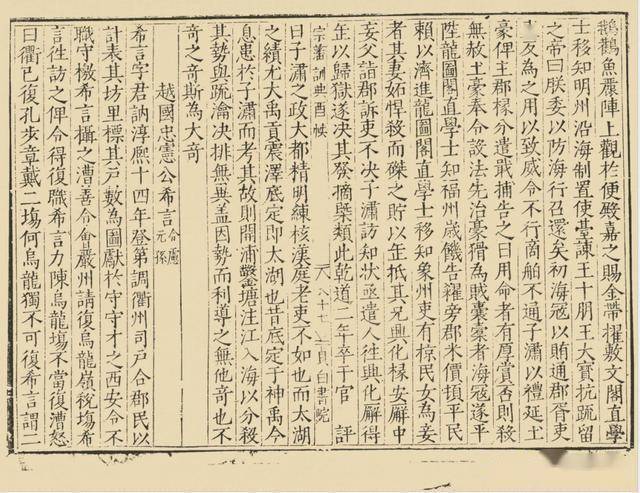 鵝鸛魚麗陣上觀於便殿嘉之賜金帶擢敷文閣直學
士移知明州沿海制置使臺諫王十朋王大寶抗疏留
之帝曰朕委以防海行召還矣初海冦以賄通郡胥吏
友為之用以致威令不行商舶不通子潚以禮延土
豪俾主郡檄分遣戢捕告之日用命者有厚賞否則殺
無赦土豪奉令設法先治豪猾為賊囊橐者海冦遂平
陞龍圖閣直學士知福州歲饑告糴旁郡米價頓平民
賴以濟進龍圖閣直學士移知象州吏有掠民女為妾
者其妻妬悍殺而磔之貯以缶抵其兄興化椽安廨中
妾父詣郡訴吏不決子潚訪知狀亟遣人往興化廨得
缶以歸獄遂決其發摘槩類此乾道二年卒于官 評
宗藩訓典酉帙 八十七 自白書院
曰子潚之政大都精明練核漢庭老吏不如也而太湖
之績尤大禹貢震澤底定即太湖也昔底定于神禹今
息患於子潚而考其故則開浦鑿塘注江入海以分殺
其勢與䟽瀹決排無異盖因勢而利導之無他奇也不
奇之奇斯為大奇
越國忠憲公希言 令㢘元孫
希言字君訥淳熙十四年登第調衢州司戶合郡民以
計表其坊里標其戶數為圖獻於守守才之西安令不
職守檄希言攝之漕善令會嚴州請復烏龍嶺稅塲希
言徃訪之俾令得復職希言力陳烏龍塲不當復漕怒
曰衢已復孔步章戴二塲何烏龍獨不可復希言謂二